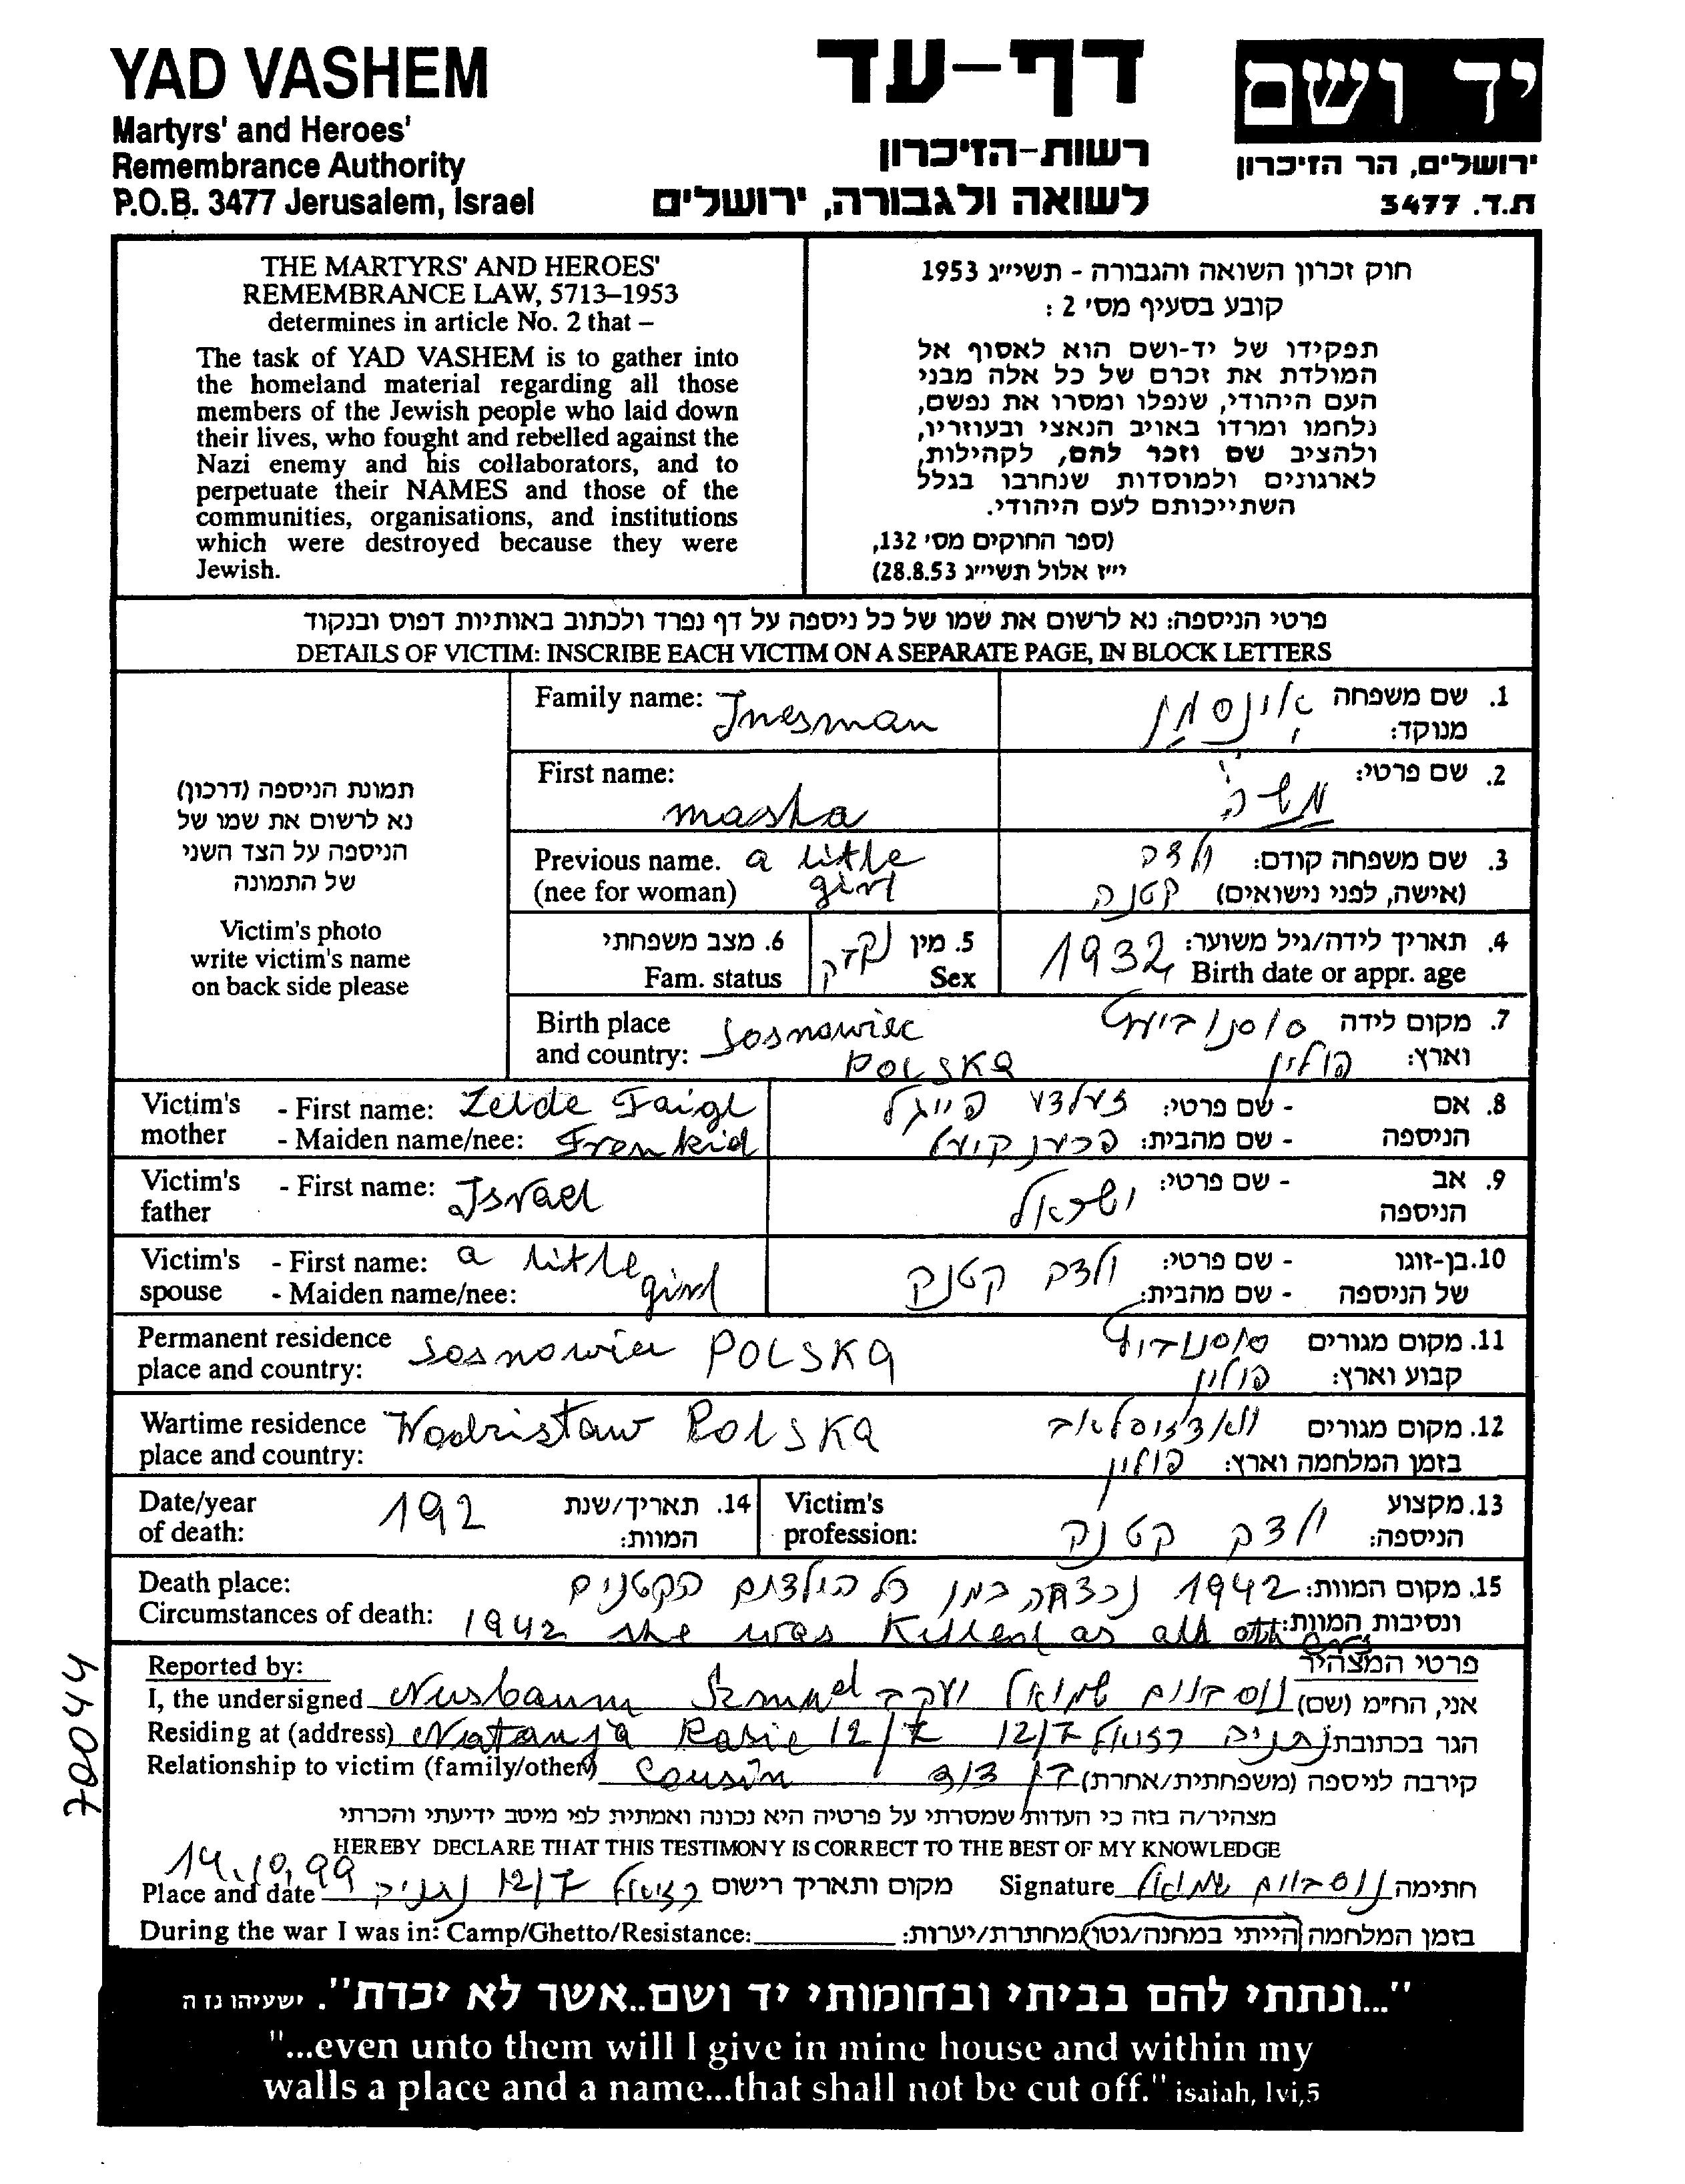 YAD VASHEM
Martyrs' and Heroes'
Remembrance Authority
P.O.B. 3477 Jerusalem, Israel
דף-עד
רשות-הזיכרון
לשואה ולגבורה, ירושלים
יד ושם
ירושלים, הר הזיכרון
ת.ד. 3477
THE MARTYRS' AND HEROES'
REMEMBRANCE LAW, 5713–1953
determines in article No. 2 that –
The task of YAD VASHEM is to gather into
the homeland material regarding all those
members of the Jewish people who laid down
their lives, who fought and rebelled against the
Nazi enemy and his collaborators, and to
perpetuate their NAMES and those of the
communities, organisations, and institutions
which were destroyed because they were
Jewish.
חוק זכרון השואה והגבורה - תשי״ג 1953
קובע בסעיף מס' 2 :
תפקידו של יד-ושם הוא לאסוף אל
המולדת את זכרם של כל אלה מבני
העם היהודי, שנפלו ומסרו את נפשם,
נלחמו ומרדו באויב הנאצי ובעוזריו,
ולהציב שם וזכר להם, לקהילות,
לארגונים ולמוסדות שנחרבו בגלל
השתייכותם לעם היהודי.
(ספר החוקים מס' 132,
י״ז אלול תשי״ג 28.8.53)
פרטי הניספה: נא לרשום את שמו של כל ניספה על דף נפרד ולכתוב באותיות דפוס ובנקוד
DETAILS OF VICTIM: INSCRIBE EACH VICTIM ON A SEPARATE PAGE, IN BLOCK LETTERS
תמונת הניספה (דרכון)
נא לרשום את שמו של
הניספה על הצד השני
של התמונה
Victim's photo
write victim's name
on back side please
Family name: Inesman
1. שם משפחה אינסמן
מנוקד:
First name:
masha
2. שם פרטי:
משה
Previous name. a little
(nee for woman) girl
3. שם משפחה קודם: ילדה
(אישה, לפני נישואים) קטנה
6. מצב משפחתי
Fam. status
5. מין נקבה
Sex
4. תאריך לידה/גיל משוער:
Birth date or appr. age 1932
Birth place Sosnowiec
and country: POLSKA
7. מקום לידה
וארץ: פולין
Victim's - First name: Zelde Faigl
mother - Maiden name/nee:
8. אם - שם פרטי: זעלדע פייגל
הניספה - שם מהבית:
Victim's - First name: Israel
father
9. אב - שם פרטי: ישראל
הניספה
Victim's - First name: a little
spouse - Maiden name/nee: girl
10. בן-זוגו - שם פרטי: ילדה קטנה
של הניספה - שם מהבית:
Permanent residence
place and country: Sosnowiec POLSKA
11. מקום מגורים
קבוע וארץ: פולין
Wartime residence Wodzistaw POLSKA
place and country:
12. מקום מגורים
בזמן המלחמה וארץ: פולין
Date/year
of death: 192
14. תאריך/שנת
המוות:
Victim's
profession:
13. מקצוע
הניספה: ילדה קטנה
Death place:
15. מקום המוות: 1942 נרצחה כמו כל הילדים הקטנים
Circumstances of death: 1942 she was killed as all others
ונסיבות המוות:
Reported by:
פרטי המצהיר
I, the undersigned Nusbaum Szmuel
אני, הח״מ (שם) נוסבוים שמואל יעקב
Residing at (address) Natanja Rasiel 12/7
הגר בכתובת נתניה רזיאל 12/7
Relationship to victim (family/other) Cousin
קירבה לניספה (משפחתית/אחרת) בן דוד
מצהיר/ה בזה כי העדות שמסרתי על פרטיה היא נכונה ואמתית לפי מיטב ידיעתי והכרתי
HEREBY DECLARE THAT THIS TESTIMONY IS CORRECT TO THE BEST OF MY KNOWLEDGE
14.10.99
Place and date רזיאל 12/7 נתניה מקום ותאריך רישום
Signature נוסבוים שמואל חתימה
During the war I was in: Camp/Ghetto/Resistance:
בזמן המלחמה הייתי במחנה/גטו/מחתרת/יערות:
70044
"...ונתתי להם בביתי ובחומותי יד ושם..אשר לא יכרת". ישעיהו נו ה
"...even unto them will I give in mine house and within my
walls a place and a name...that shall not be cut off." isaiah, lvi,5